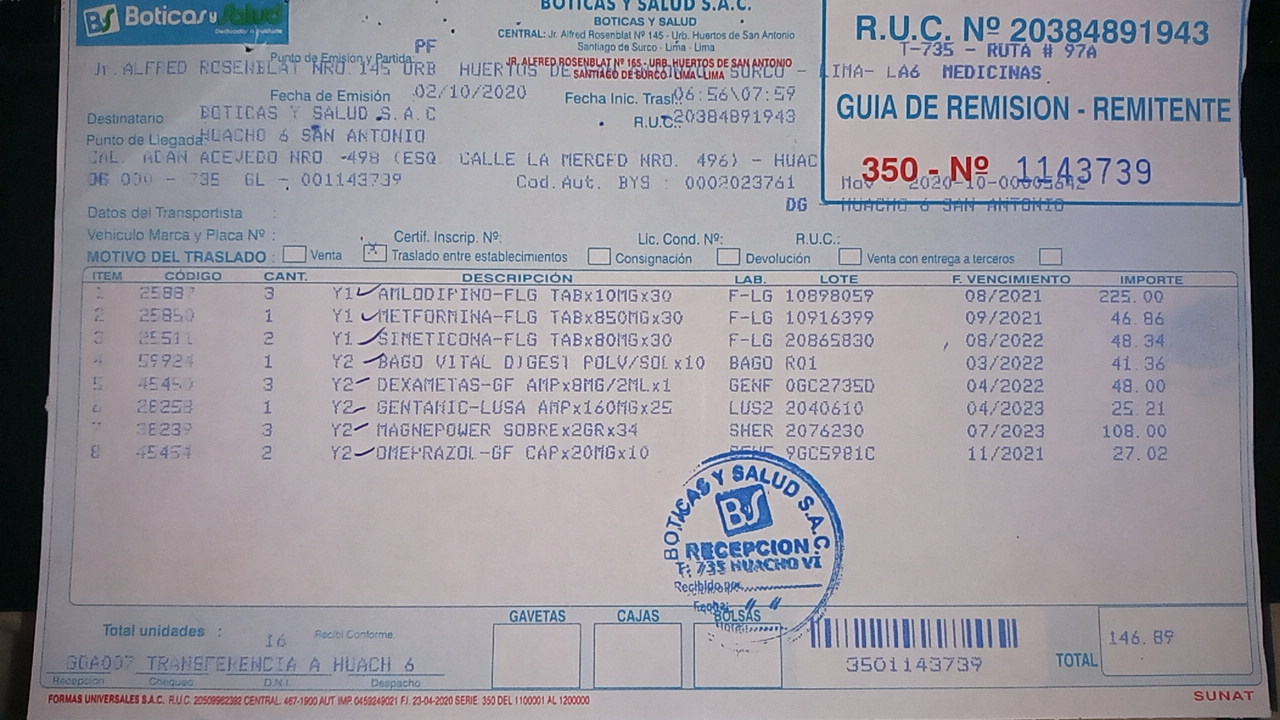 BS Boticas y Salud
BOTICAS Y SALUD S.A.C.
BOTICAS Y SALUD
CENTRAL: Jr. Alfred Rosenblat Nº 145 - Urb. Huertos de San Antonio
Santiago de Surco - Lima - Lima
R.U.C. Nº 20384891943
T-735 - RUTA # 97A
PF
Punto de Emisión y Partida:
JR. ALFRED ROSENBLAT Nº 165 - URB. HUERTOS DE SAN ANTONIO
SANTIAGO DE SURCO - LIMA - LIMA
Jr. ALFRED ROSENBLAT NRO. 145 URB HUERTOS DE SURCO - LIMA- LA6 MEDICINAS
Fecha de Emisión 02/10/2020 Fecha Inic. Trasl.: 06:56\07:59
GUIA DE REMISION - REMITENTE
Destinatario BOTICAS Y SALUD S.A.C R.U.C.: 20384891943
Punto de Llegada: HUACHO 6 SAN ANTONIO
CAL. ADAN ACEVEDO NRO. -498 (ESQ. CALLE LA MERCED NRO. 496) - HUAC
350 - Nº 1143739
06 000 - 735 GL - 001143739 Cod.Aut. BYS : 0002023761
Mov 2020-10-00005642
DG - HUACHO 6 SAN ANTONIO
Datos del Transportista :
Vehiculo Marca y Placa Nº : Certif. Inscrip. Nº: Lic. Cond. Nº: R.U.C.:
MOTIVO DEL TRASLADO : Venta X Traslado entre establecimientos Consignación Devolución Venta con entrega a terceros
ITEM CÓDIGO CANT. DESCRIPCIÓN LAB. LOTE F. VENCIMIENTO IMPORTE
1 25887 3 Y1 AMLODIPINO-FLG TABx10MGx30 F-LG 10898059 08/2021 225.00
2 25850 1 Y1 METFORMINA-FLG TABx850MGx30 F-LG 10916399 09/2021 46.86
3 25511 2 Y1 SIMETICONA-FLG TABx80MGx30 F-LG 20865830 08/2022 48.34
4 59924 1 Y2 BAGO VITAL DIGEST POLV/SOLx10 BAGO R01 03/2022 41.36
5 45450 3 Y2 DEXAMETAS-GF AMPx8MG/2MLx1 GENF 0GC2735D 04/2022 48.00
6 28258 1 Y2 GENTAMIC-LUSA AMPx160MGx25 LUS2 2040610 04/2023 25.21
7 38239 3 Y2 MAGNEPOWER SOBREx2GRx34 SHER 2076230 07/2023 108.00
8 45454 2 Y2 OMEPRAZOL-GF CAPx20MGx10 GENF 9GC5981C 11/2021 27.02
BOTICAS Y SALUD S.A.C
BS
RECEPCION
T: 735 HUACHO VI
Recibido por:
Fecha:
Hora:
GAVETAS CAJAS BOLSAS
Total unidades : 16 Recibi Conforme:
GDA007 TRANSFERENCIA A HUACH 6
Recepcion Chequeo D.N.I. Despacho
3501143739
TOTAL 146.89
FORMAS UNIVERSALES S.A.C. R.U.C. 20509962392 CENTRAL: 467-1900 AUT IMP. 0459249021 F.I. 23-04-2020 SERIE: 350 DEL 1100001 AL 1200000
SUNAT